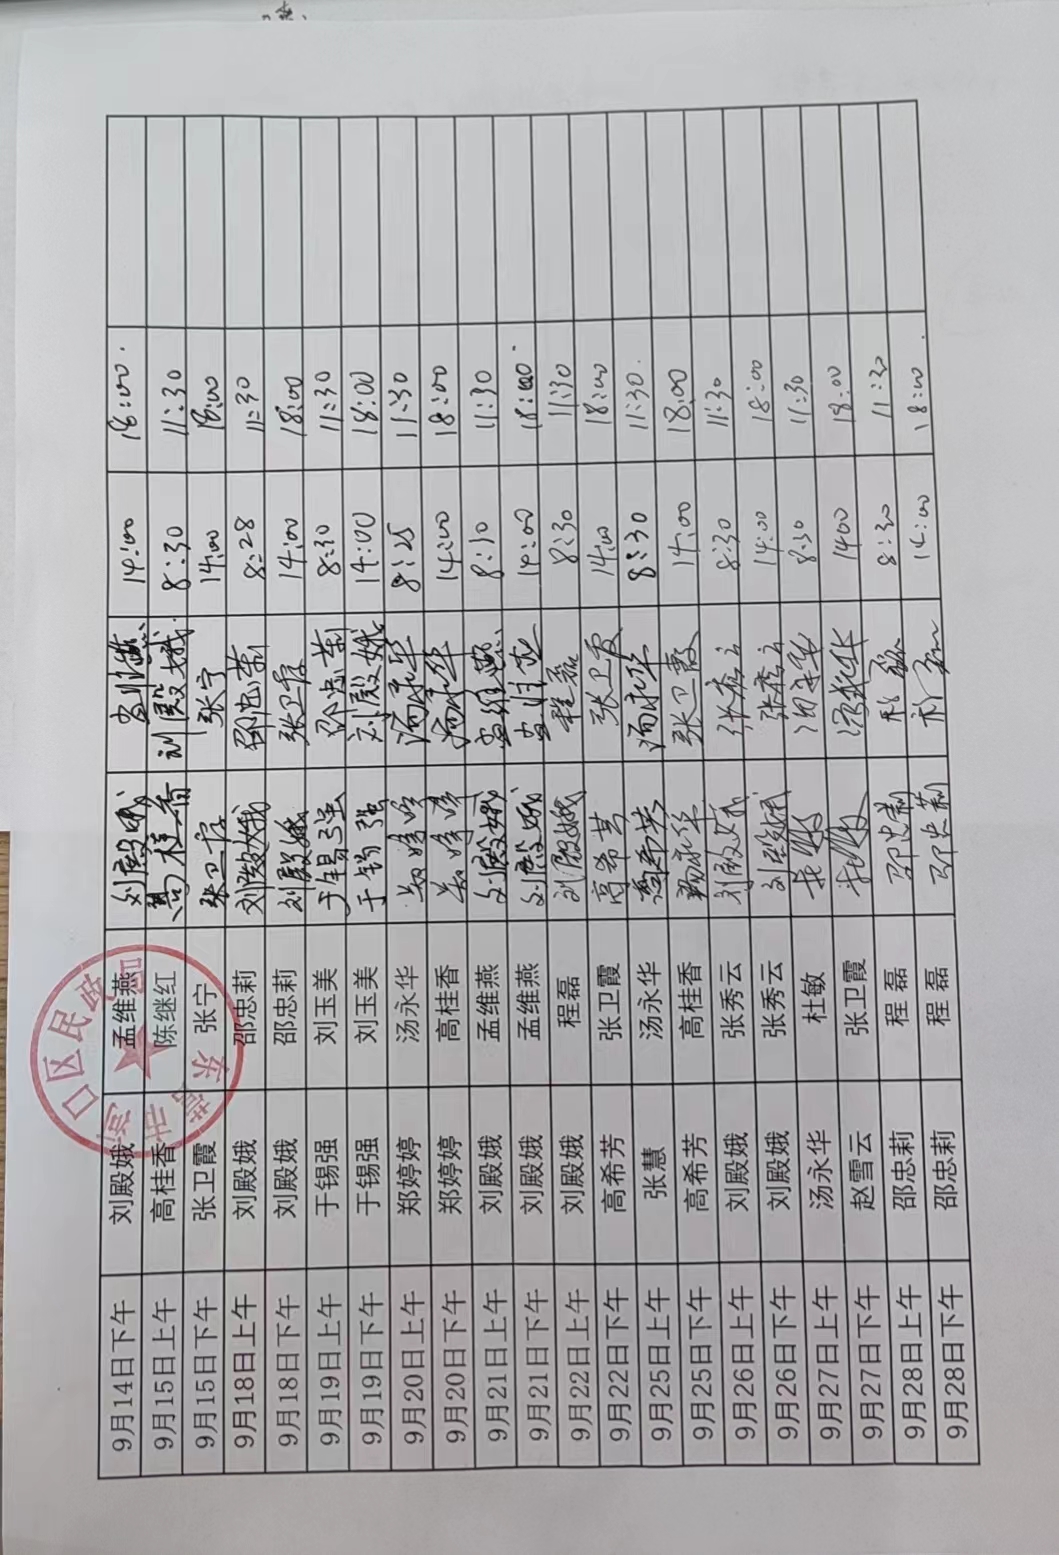 9月14日下午 刘殿娥 孟维燕 刘殿娥 孟维燕 14:00 18:00
9月15日上午 高桂香 陈继红 高桂香 刘殿娥 8:30 11:30
9月15日下午 张卫霞 张宁 张卫霞 张宁 14:00 18:00
9月18日上午 刘殿娥 邵忠莉 刘殿娥 邵忠莉 8:28 11:30
9月18日下午 刘殿娥 邵忠莉 刘殿娥 张卫霞 14:00 18:00
9月19日上午 于锡强 刘玉美 于锡强 邵忠莉 8:30 11:30
9月19日下午 于锡强 刘玉美 于锡强 刘殿娥 14:00 18:00
9月20日上午 郑婷婷 汤永华 汤永华 8:25 11:30
9月20日下午 郑婷婷 高桂香 汤永华 14:00 18:00
9月21日上午 刘殿娥 孟维燕 刘殿娥 孟维燕 8:30 11:30
9月21日下午 刘殿娥 孟维燕 刘殿娥 孟维燕 14:00 18:00
9月22日上午 刘殿娥 程磊 刘殿娥 程磊 8:30 11:30
9月22日下午 高希芳 张卫霞 高希芳 张卫霞 14:00 18:00
9月25日上午 张慧 汤永华 汤永华 8:30 11:30
9月25日下午 高希芳 高桂香 汤永华 张卫霞 14:00 18:00
9月26日上午 刘殿娥 张秀云 刘殿娥 张秀云 8:30 11:30
9月26日下午 刘殿娥 张秀云 刘殿娥 张秀云 14:00 18:00
9月27日上午 汤永华 杜敏 汤永华 8:30 11:30
9月27日下午 赵雪云 张卫霞 汤永华 1400 18:00
9月28日上午 邵忠莉 程磊 邵忠莉 程磊 8:30 11:30
9月28日下午 邵忠莉 程磊 邵忠莉 程磊 14:00 18:00